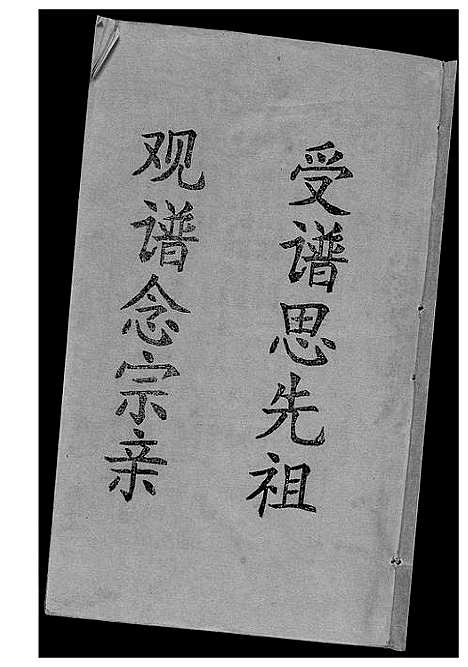 受谱思先祖
观谱念宗亲